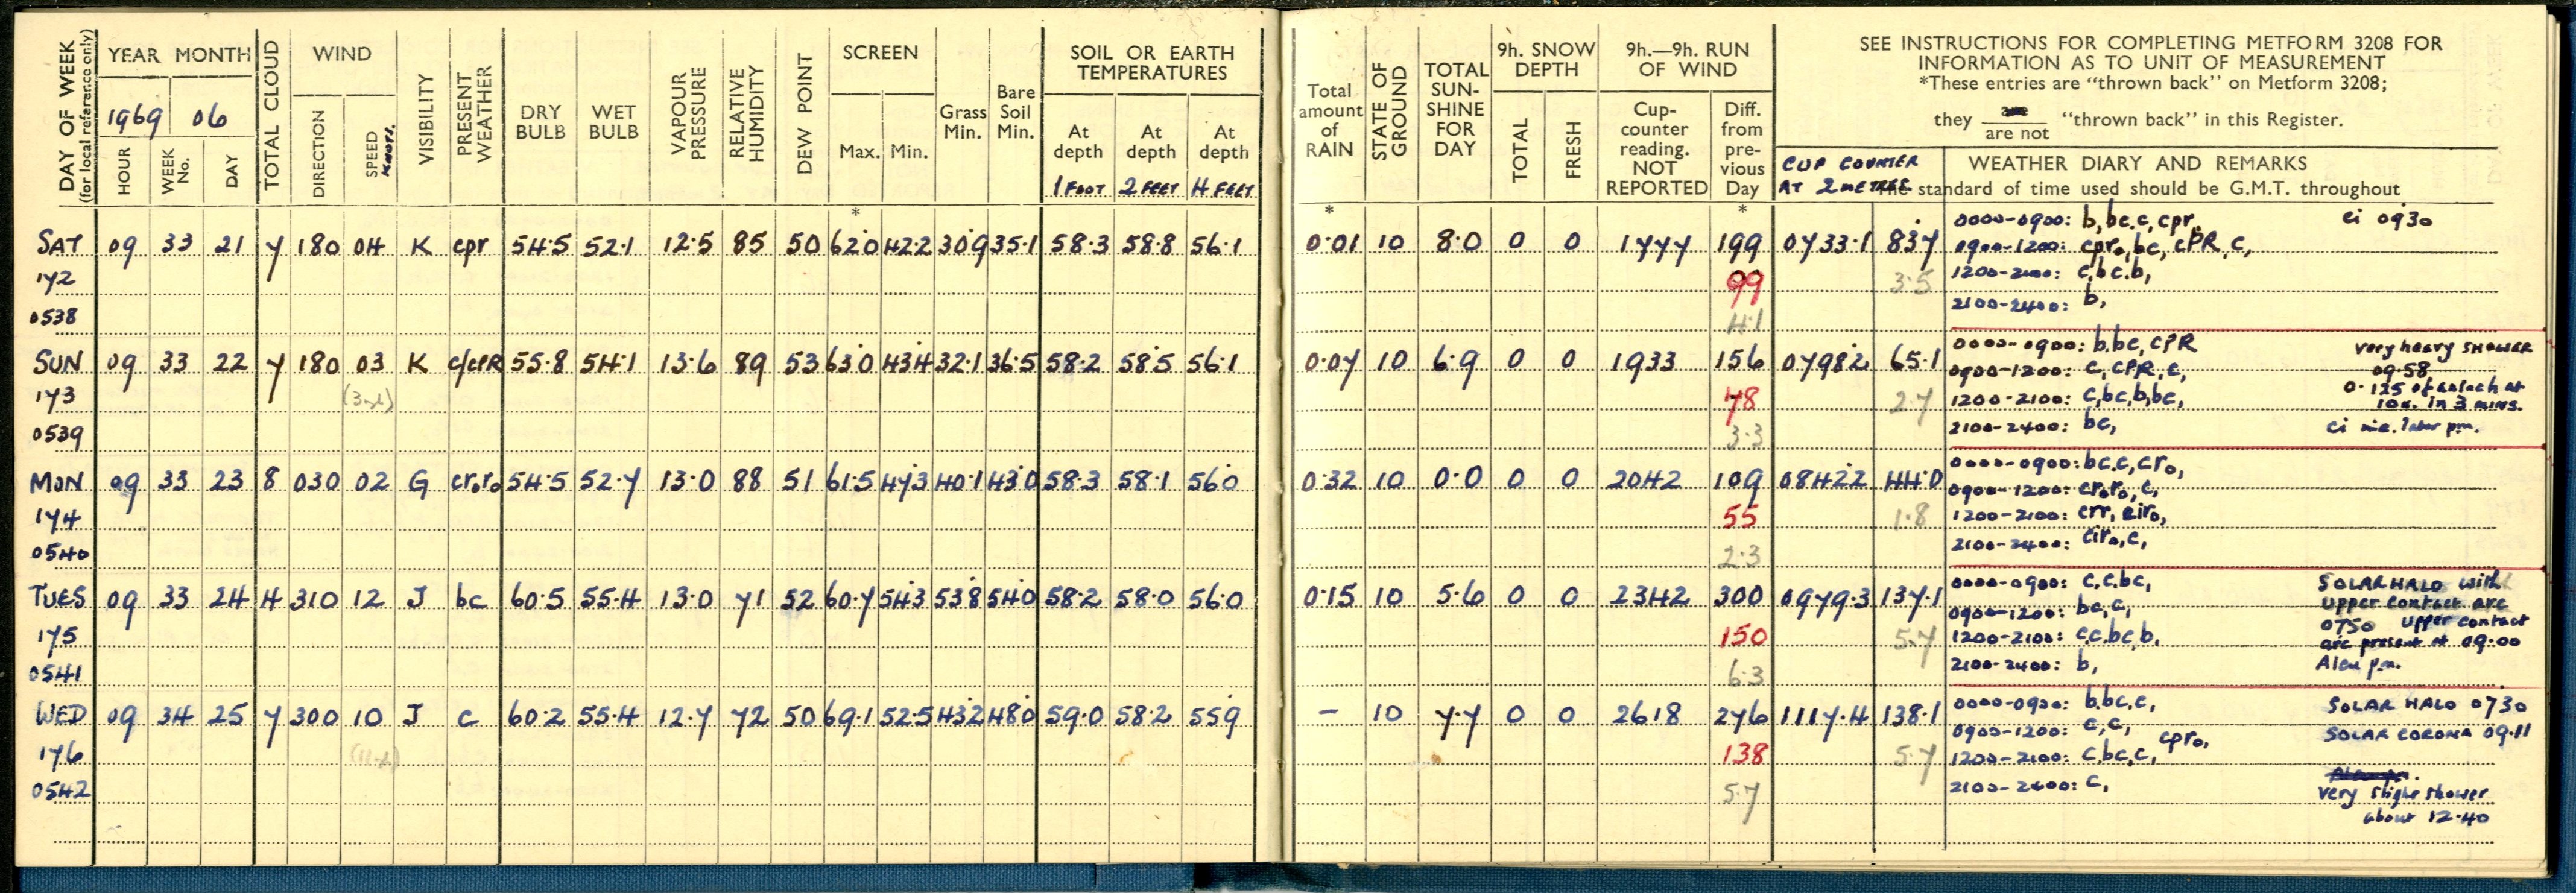 DAY OF WEEK
(for local reference only)
YEAR MONTH
1969 06
HOUR
WEEK No.
DAY
TOTAL CLOUD
WIND
DIRECTION
SPEED KNOTS.
VISIBILITY
PRESENT WEATHER
DRY BULB
WET BULB
VAPOUR PRESSURE
RELATIVE HUMIDITY
DEW POINT
SCREEN
Max. Min.
Grass Min.
Bare Soil Min.
SOIL OR EARTH TEMPERATURES
At depth 1 FOOT
At depth 2 FEET
At depth 4 FEET
Total amount of RAIN
STATE OF GROUND
TOTAL SUN-SHINE FOR DAY
9h. SNOW DEPTH
TOTAL
FRESH
9h.—9h. RUN OF WIND
Cup-counter reading. NOT REPORTED
Diff. from pre-vious Day
SEE INSTRUCTIONS FOR COMPLETING METFORM 3208 FOR
INFORMATION AS TO UNIT OF MEASUREMENT
*These entries are "thrown back" on Metform 3208;
they are / are not "thrown back" in this Register.
CUP COUNTER
AT 2 METRES
WEATHER DIARY AND REMARKS
The standard of time used should be G.M.T. throughout
* * *
SAT 09 33 21 7 180 04 K cpr 54.5 52.1 12.5 85 50 62.0 42.2 30.9 35.1 58.3 58.8 56.1 0.01 10 8.0 0 0 1777 199 0733.1 83.7
172
0538
99
4.1
3.5
0000-0900: b, bc, c, cpr, ci 0930
0900-1200: cpr₀, bc, cPR, c,
1200-2100: c, bc, b,
2100-2400: b,
SUN 09 33 22 7 180 03 K c/cPR 55.8 54.1 13.6 89 53 63.0 43.4 32.1 36.5 58.2 58.5 56.1 0.07 10 6.9 0 0 1933 156 0798.2 65.1
173
0539
78
3.3
2.7
0000-0900: b, bc, cPR
0900-1200: c, cPR, c,
1200-2100: c, bc, b, bc,
2100-2400: bc,
very heavy SHOWER
09.58
0.125 of an inch at
10h. in 3 mins.
MON 09 33 23 8 030 02 G cr₀r₀ 54.5 52.7 13.0 88 51 61.5 47.3 40.1 43.0 58.3 58.1 56.0 0.32 10 0.0 0 0 2042 109 0842.2 44.0
174
0540
55
2.3
1.8
0000-0900: bc, c, cr₀,
0900-1200: cr₀r₀, c,
1200-2100: crr, cir₀,
2100-2400: cir₀, c,
TUES 09 33 24 4 310 12 J bc 60.5 55.4 13.0 71 52 60.7 54.3 53.8 54.0 58.2 58.0 56.0 0.15 10 5.6 0 0 2342 300 0979.3 137.1
175
0541
150
6.3
5.7
0000-0900: c, c, bc,
0900-1200: bc, c,
1200-2100: c, c, bc, b,
2100-2400: b,
SOLAR HALO with
upper contact arc
0750 upper contact
arc present at 09.00
Also pm.
WED 09 34 25 7 300 10 J c 60.2 55.4 12.7 72 50 69.1 52.5 43.2 48.0 59.0 58.2 55.9 – 10 7.7 0 0 2618 276 1117.4 138.1
176
0542
138
5.7
5.7
0000-0900: b, bc, c,
0900-1200: c, c,
1200-2100: c, bc, c, cpr₀,
2100-2400: c,
SOLAR HALO 0730
SOLAR CORONA 09.11
very slight shower
about 12.40